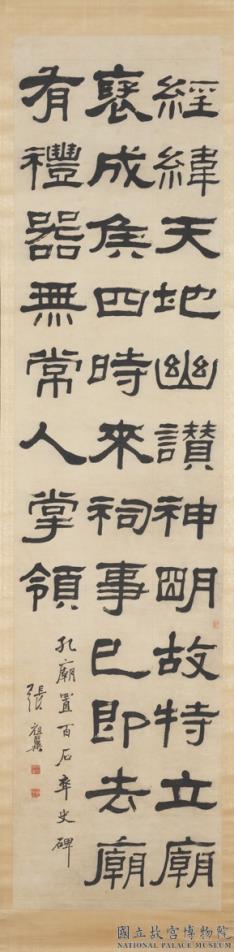 經緯天地幽讚神明故特立廟
襃成侯四時來祠事已即去廟
有禮器無常人掌領
孔廟置百石卒史碑
張祖翼
國立故宮博物院
NATIONAL PALACE MUSEUM